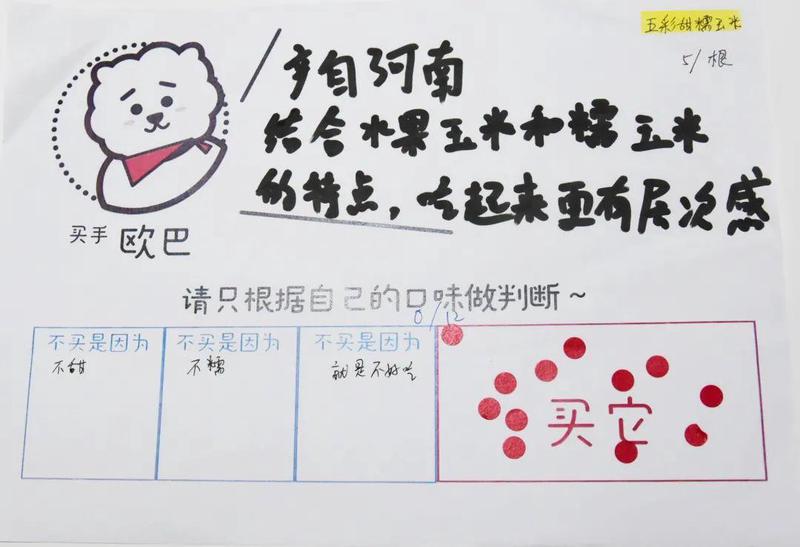 五彩甜糯玉米
5/根
产自河南
结合水果玉米和糯玉米
的特点，吃起来更有层次感
买手 欧巴
请只根据自己的口味做判断~
0/12
不买是因为
不甜
不买是因为
不糯
不买是因为
就是不好吃
买它